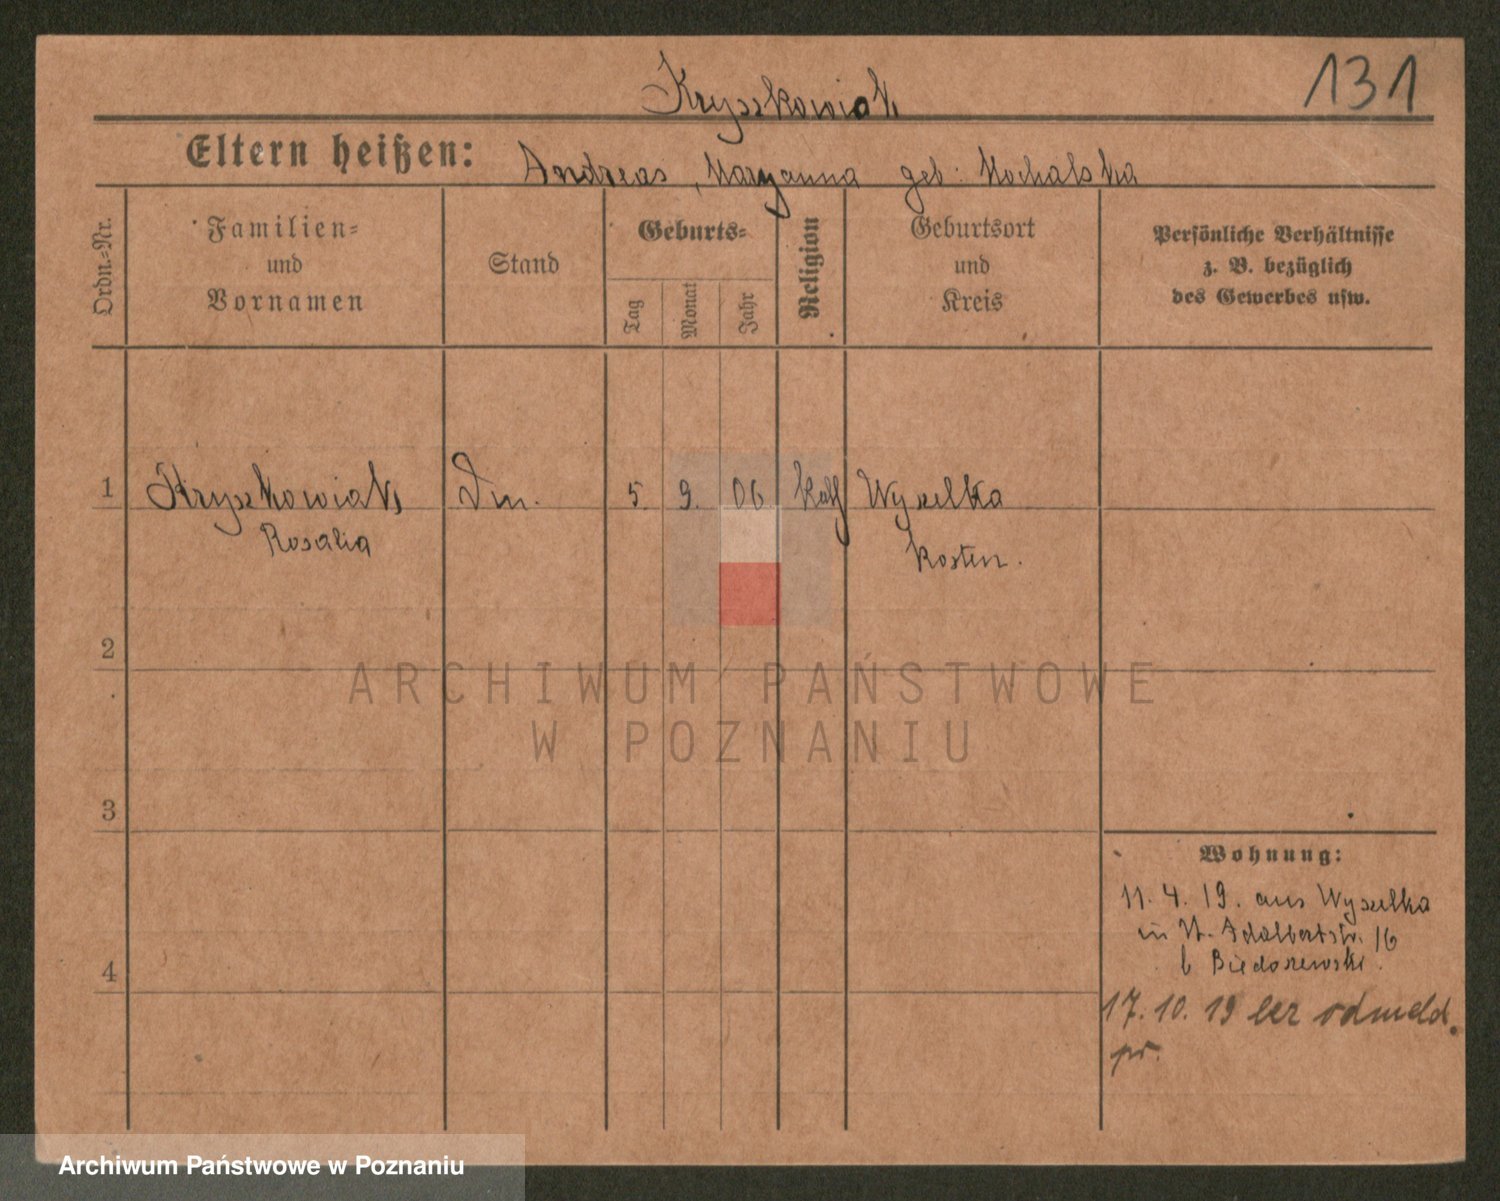 131
Kryszkowiak
Eltern heißen: Andreas, Maryanna geb: Mochalska
Ordn.-Nr.
Familien-
und
Vornamen
Stand
Geburts-
Tag
Monat
Jahr
Religion
Geburtsort
und
Kreis
Persönliche Verhältnisse
z. B. bezüglich
des Gewerbes usw.
1 Kryszkowiak Dm. 5. 9. 06 kath Wyselka
Rosalia Kosten.
2
ARCHIWUM PAŃSTWOWE
W POZNANIU
3
Wohnung:
11. 4. 19. aus Wyselka
in St. Adalbertstr. 16
b Biedaszewski.
4
17. 10. 19 bez odmeld.
pr.
Archiwum Państwowe w Poznaniu